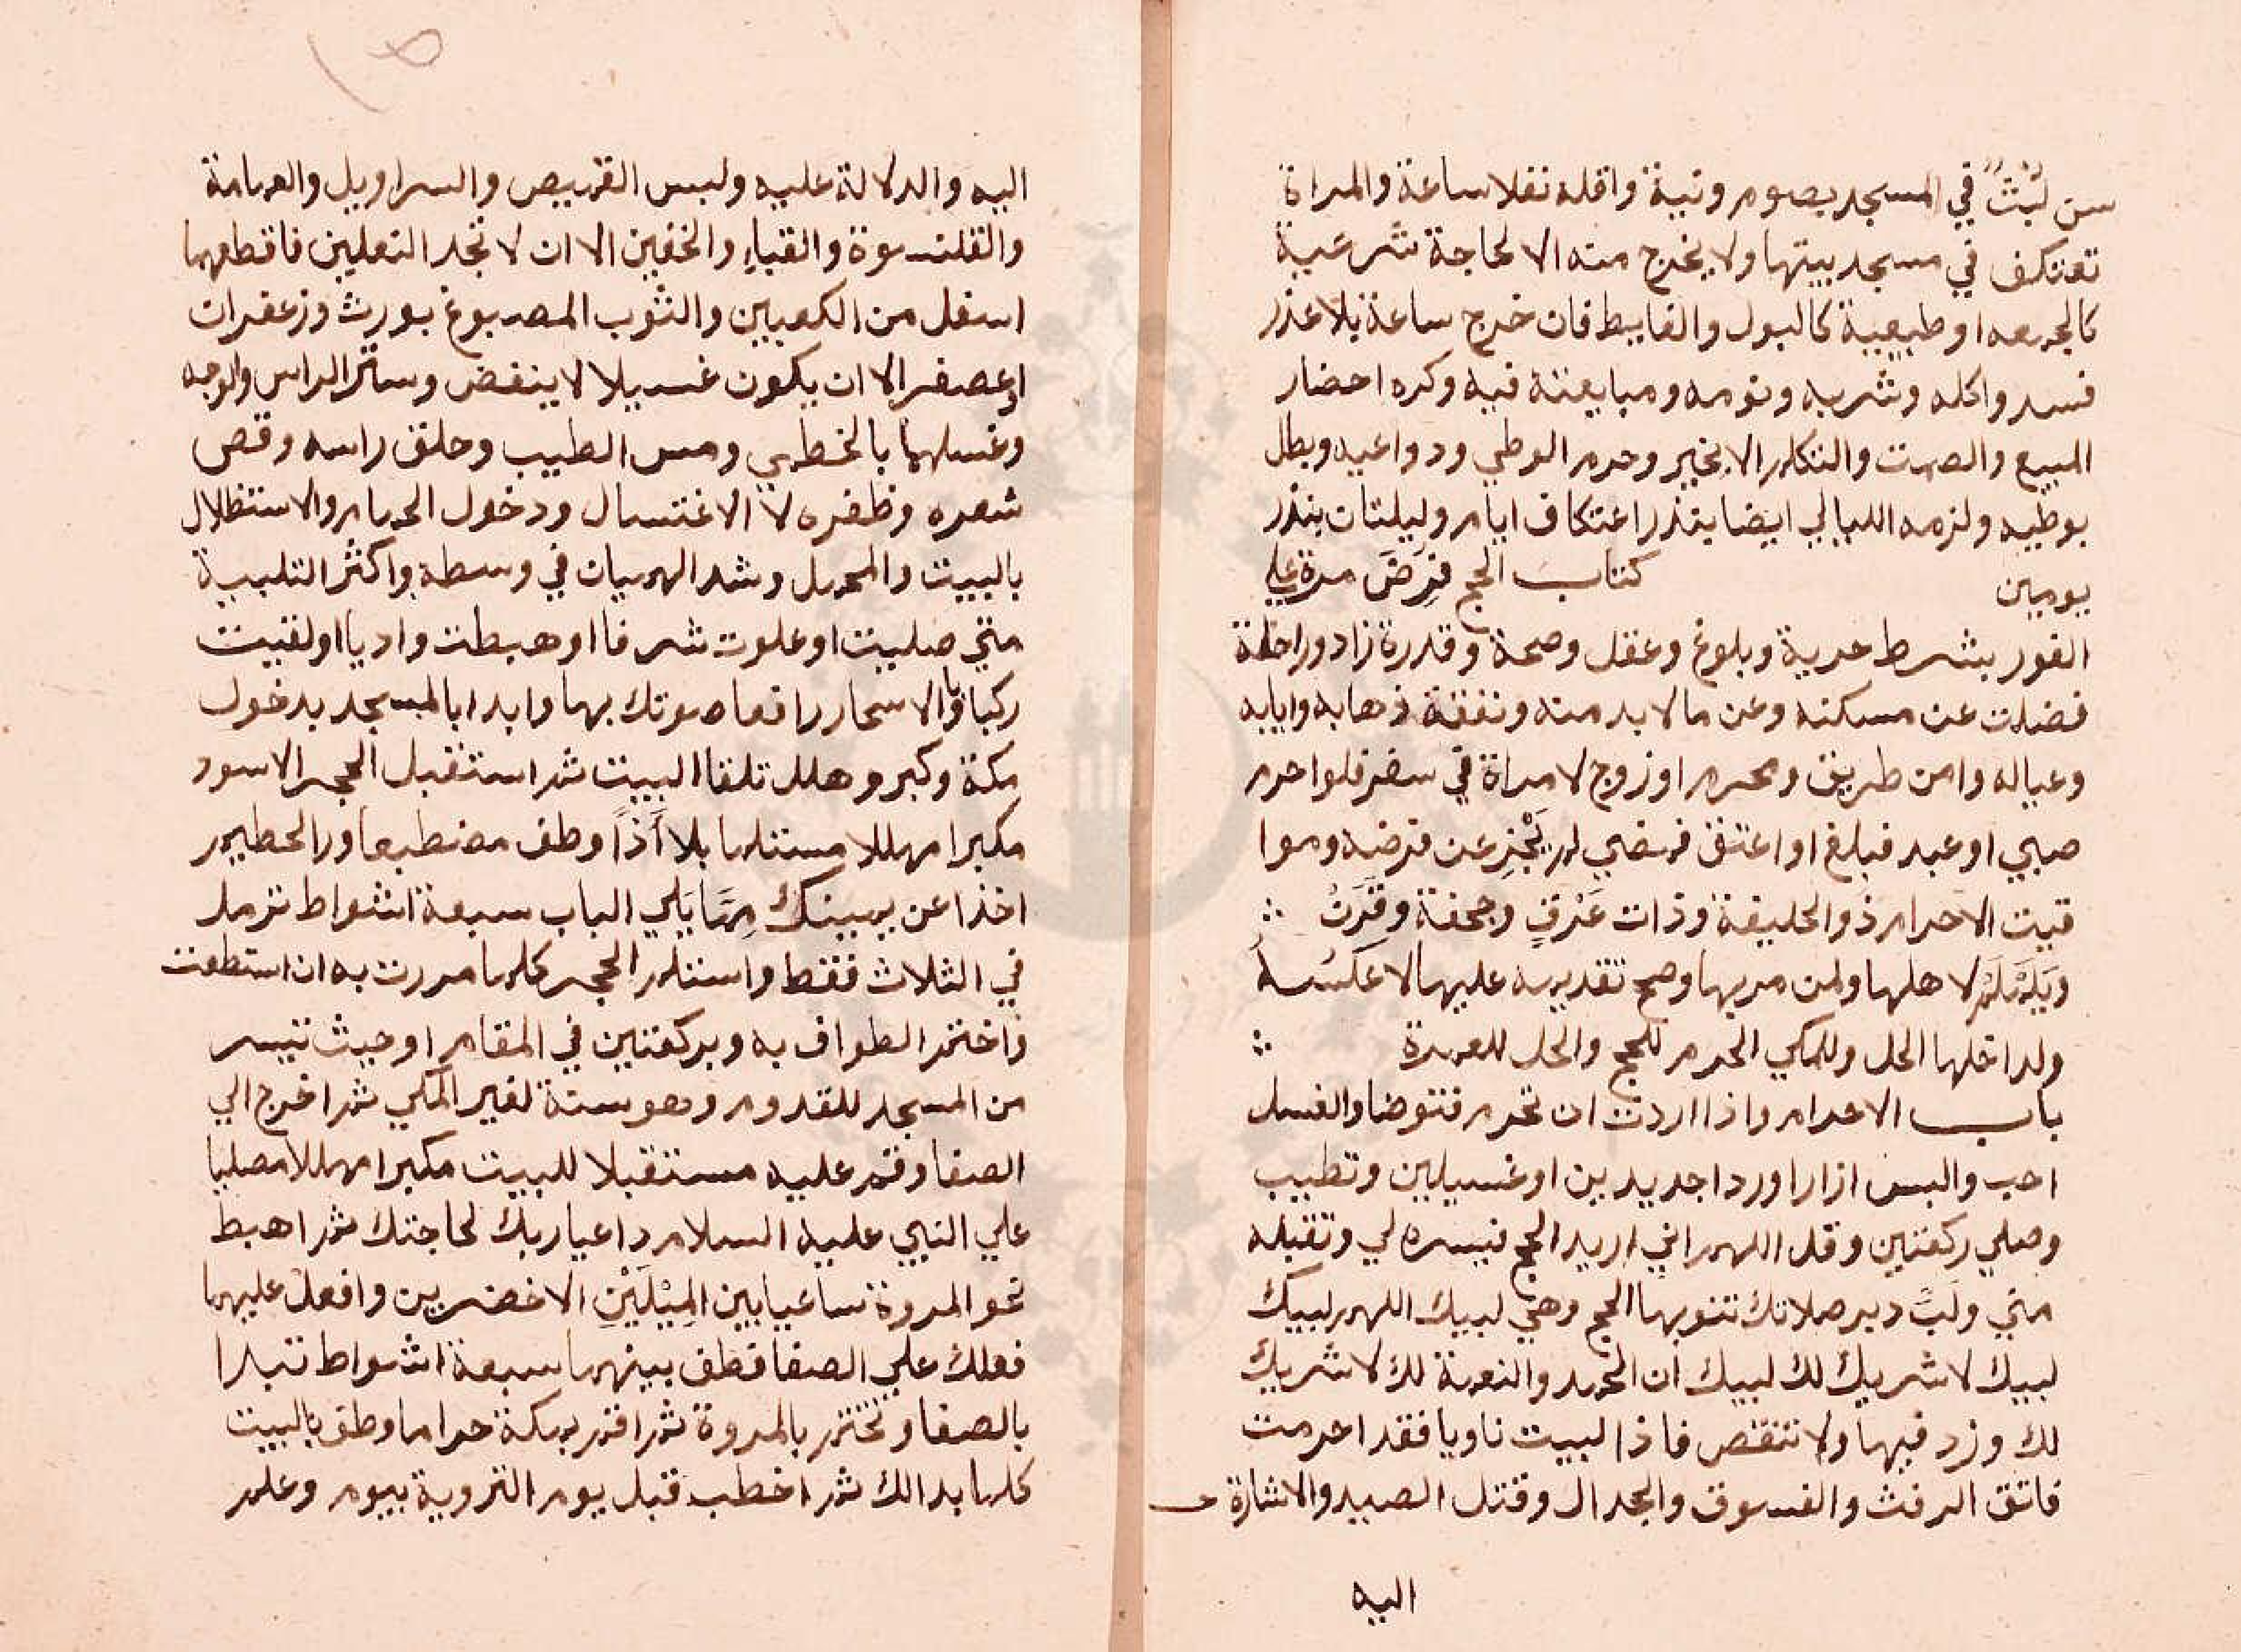 سن لُبْثٌ في المسجد بصوم ونية واقله نفلا ساعة والمراة
تعتكف في مسجد بيتها ولا يخرج منه الا لحاجة شرعية
كالجمعه او طبيعية كالبول والغايط فان خرج ساعة بلا عذر
فسد واكله وشربه ونومه ومبايعته فيه وكره احضار
المبيع والصمت والتكلم الا بخير وحرم الوطي ودواعيه وبطل
بوطيه ولزمه الليالي ايضا بنذر اعتكاف ايام وليلتان بنذر
يومين كتاب الحج فُرِضَ مرة علي
الفور بشرط حرية وبلوغ وعقل وصحة وقدرة زاد وراحلة
فضلت عن مسكنه وعن ما لا بد منه ونفقة ذهابه وايابه
وعياله وامن طريق ومحرم او زوج لامراة في سفر فلو احرم
صبي او عبد فبلغ او اعتق فمضي لم يَجُزْ عن فرضه وموا
قيت الاحرام ذو الحليفة وذات عِرْقٍ وجحفة وقَرَنُ
ويَلَمْلَمُ لاهلها ولمن مر بها وصح تقديمه عليها لا عَكسُهُ
ولداخلها الحل وللمكي الحرم للحج والحل للعمرة
باب الاحرام واذا اردت ان تحرم فتوضا والغسل
احب والبس ازارا وردا جديدين او غسيلين وتطيب
وصلي ركعتين وقل اللهم اني اريد الحج فيسره لي وتقبله
مني ولَبِّ دبر صلاتك تنوي بها الحج وهي لبيك اللهم لبيك
لبيك لا شريك لك لبيك ان الحمد والنعمة لك لا شريك
لك وزد فيها ولا تنقص فاذا لبيت ناويا فقد احرمت
فاتق الرفث والفسوق والجدال وقتل الصيد والاشارة
اليه
اليه والدلالة عليه ولبس القميص والسراويل والعمامة
والقلنسوة والقباء والخفين الا ان لا تجد النعلين فاقطعهما
اسفل من الكعبين والثوب المصبوغ بورث وزعفران
او عصفر الا ان يكون غسيلا لا ينفض وستر الراس والوجه
وغسلهما بالخطمي ومس الطيب وحلق راسه وقص
شعره وظفره لا الاغتسال ودخول الحمام والاستظلال
بالبيت والمحمل وشد الهميان في وسطه واكثر التلبية
متي صليت او علوت شرفا او هبطت واديا او لقيت
ركبا وبالاسحار رافعا صوتك بها وابدا بالمسجد بدخول
مكة وكبر وهلل تلقا البيت ثم استقبل الحجر الاسود
مكبرا مهللا مستلما بلا أذًا وطف مضطبعا ورا الحطيم
اخذا عن يمينك مِمَّا يَلي الباب سبعة اشواط ترمل
في الثلاث فقط واستلم الحجر كلما مررت به ان استطعت
واختم الطواف به وبركعتين في المقام او حيث تيسر
من المسجد للقدوم وهو سنة لغير المكي ثم اخرج الي
الصفا وقم عليه مستقبلا للبيت مكبرا مهللا مصليا
علي النبي عليه السلام داعيا ربك لحاجتك ثم اهبط
نحو المروة ساعيا بين المِيْلَيْنِ الاخضرين وافعل عليها
فعلك علي الصفا فطف بينهما سبعة اشواط تبدا
بالصفا وتختم بالمروة ثم اقم بمكة حراما وطف بالبيت
كلما بدا لك ثم اخطب قبل يوم التروية بيوم وعلم